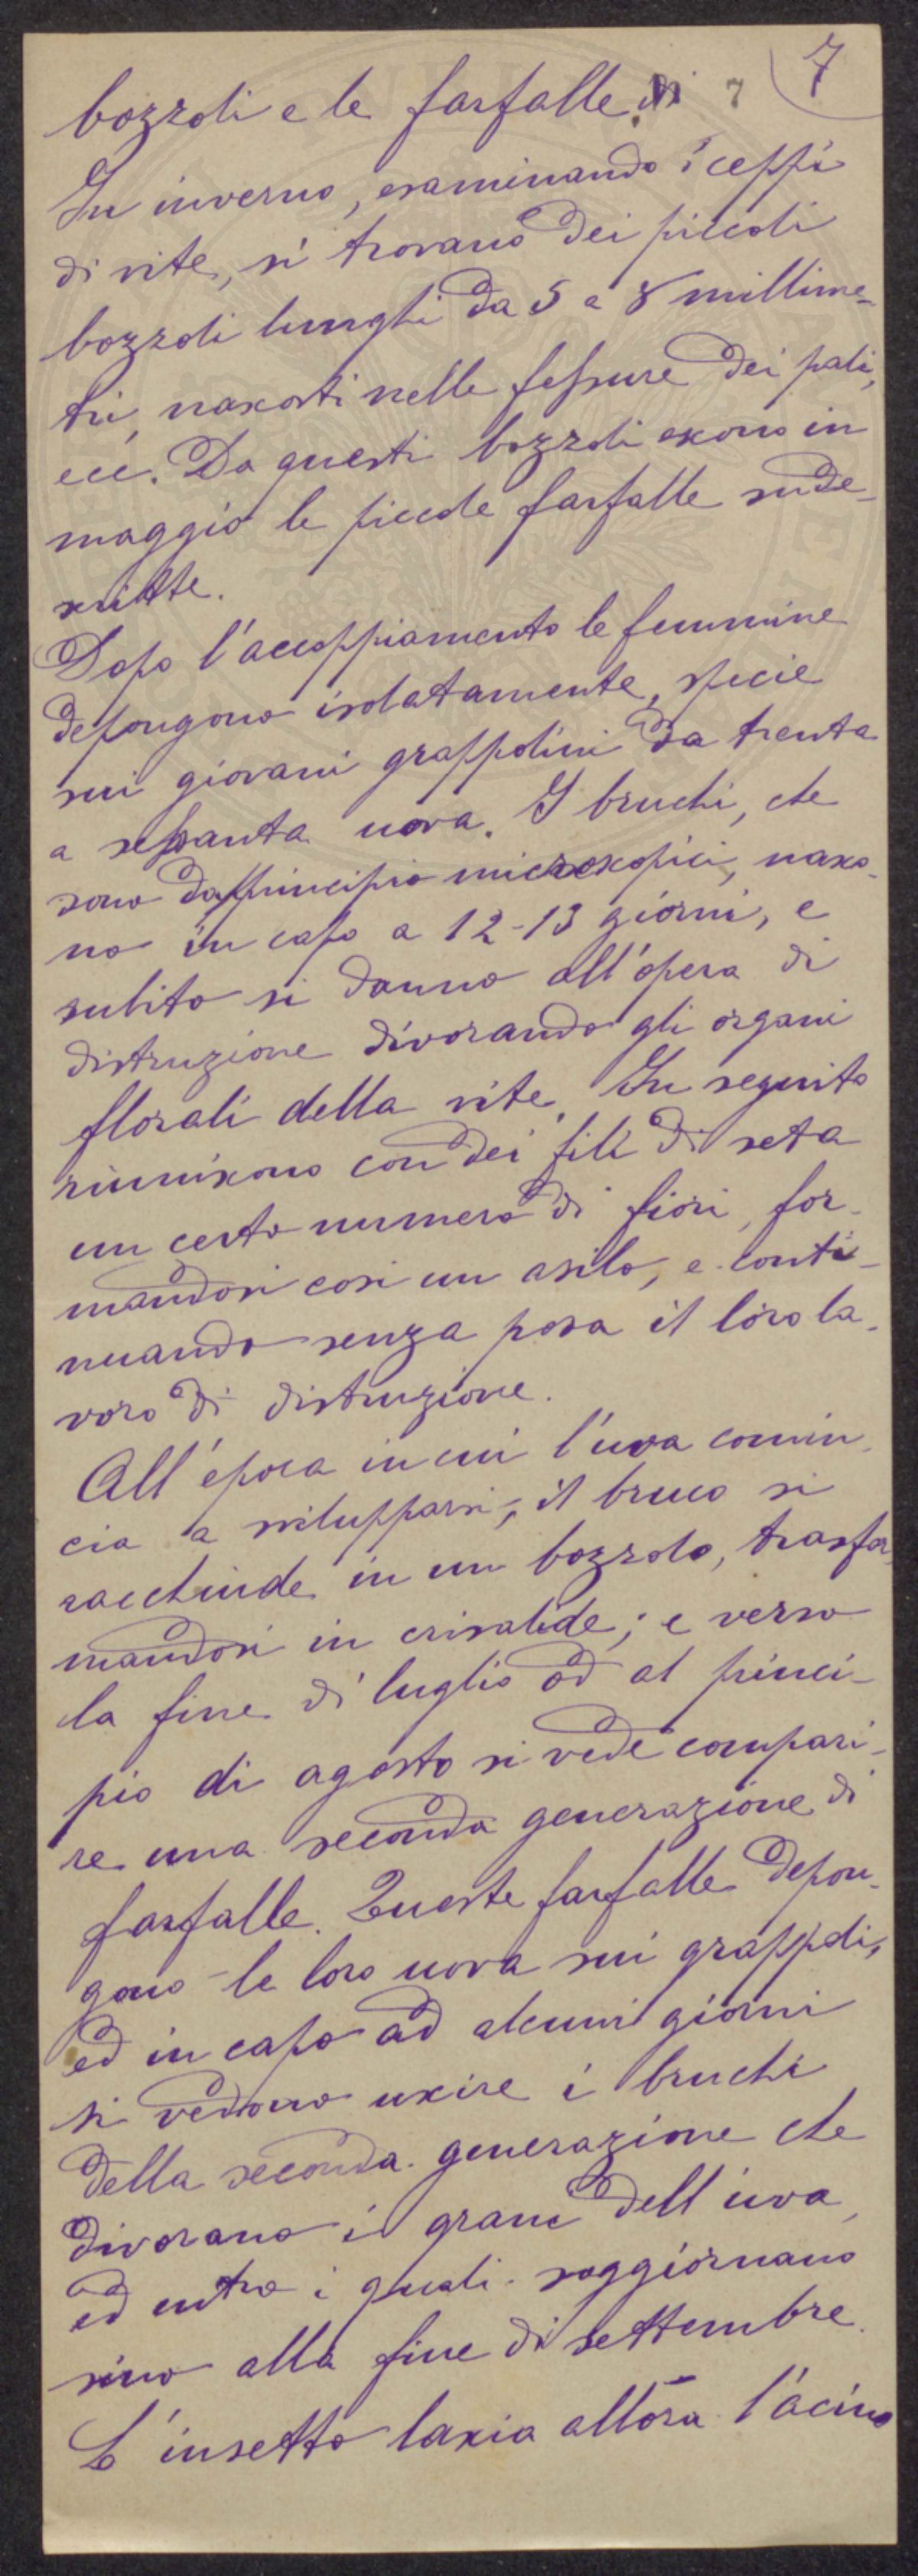 7 7
bozzoli e le farfalle.
In inverno, esaminando i ceppi
di vite, si trovano dei piccoli
bozzoli lunghi da 5 a 8 millime-
tri, nascosti nelle fessure dei pali,
ecc. Da questi bozzoli escono in
maggio le piccole farfalle sude-
scritte.
Dopo l'accoppiamento le femmine
depongono isolatamente, specie
sui giovani grappolini da trenta
a sessanta uova. I bruchi, che
sono dapprincipio microscopici, nasco-
no in capo a 12-13 giorni, e
subito si danno all'opera di
distruzione divorando gli organi
florali della vite. In seguito
riuniscono con dei fili di seta
un certo numero di fiori, for-
mandosi così un asilo, e conti-
nuando senza posa il loro la-
voro di distruzione.
All'epoca in cui l'uva comin-
cia a svilupparsi, il bruco si
racchiude in un bozzolo, trasfor-
mandosi in crisalide; e verso
la fine di luglio od al princi-
pio di agosto si vede compari-
re una seconda generazione di
farfalle. Queste farfalle depon-
gono le loro uova sui grappoli,
ed in capo ad alcuni giorni
si vedono uscire i bruchi
della seconda generazione che
divorano i grani dell'uva,
ed entro i quali soggiornano
sino alla fine di settembre.
L'insetto lascia allora l'acino